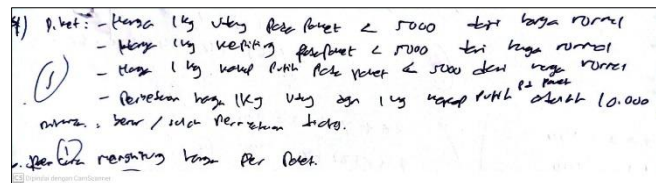 Diket : - Harga 1 kg udang pada paket < 5000 dari harga normal
- Harga 1 kg kepiting pada paket < 5000 dari harga normal
- Harga 1 kg kakap putih pada paket < 5000 dari harga normal
- Perbedaan harga 1 kg udang dgn 1 kg kakap putih pd paket adalah 10.000
benar / salah pernyataan
menghitung harga per paket.
CS Dipindai dengan CamScanner